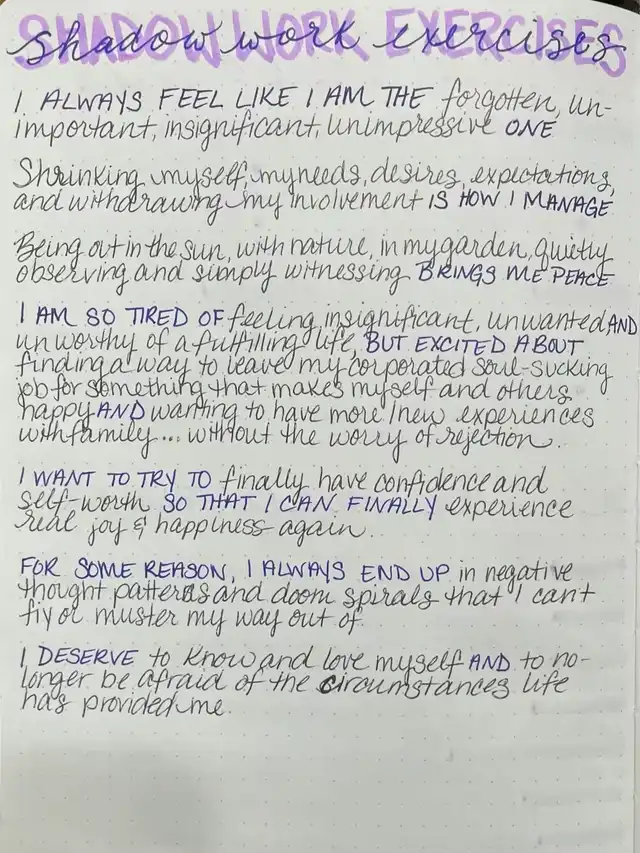 SHADOW WORK EXERCISES
shadow work exercises
I ALWAYS FEEL LIKE I AM THE forgotten, un-
important, insignificant, unimpressive ONE
Shrinking myself, my needs, desires, expectations,
and withdrawing my involvement IS HOW I MANAGE
Being out in the sun, with nature, in my garden, quietly
observing and simply witnessing BRINGS ME PEACE
I AM SO TIRED OF feeling insignificant, unwanted AND
unworthy of a fulfilling life, BUT EXCITED ABOUT
finding a way to leave my corporated soul-sucking
job for something that makes myself and others
happy AND wanting to have more/new experiences
with family... without the worry of rejection.
I WANT TO TRY TO finally have confidence and
self-worth SO THAT I CAN FINALLY experience
real joy & happiness again.
FOR SOME REASON, I ALWAYS END UP in negative
thought patterns and doom spirals that I can't
fix or muster my way out of.
I DESERVE to know and love myself AND to no-
longer be afraid of the circumstances life
has provided me.